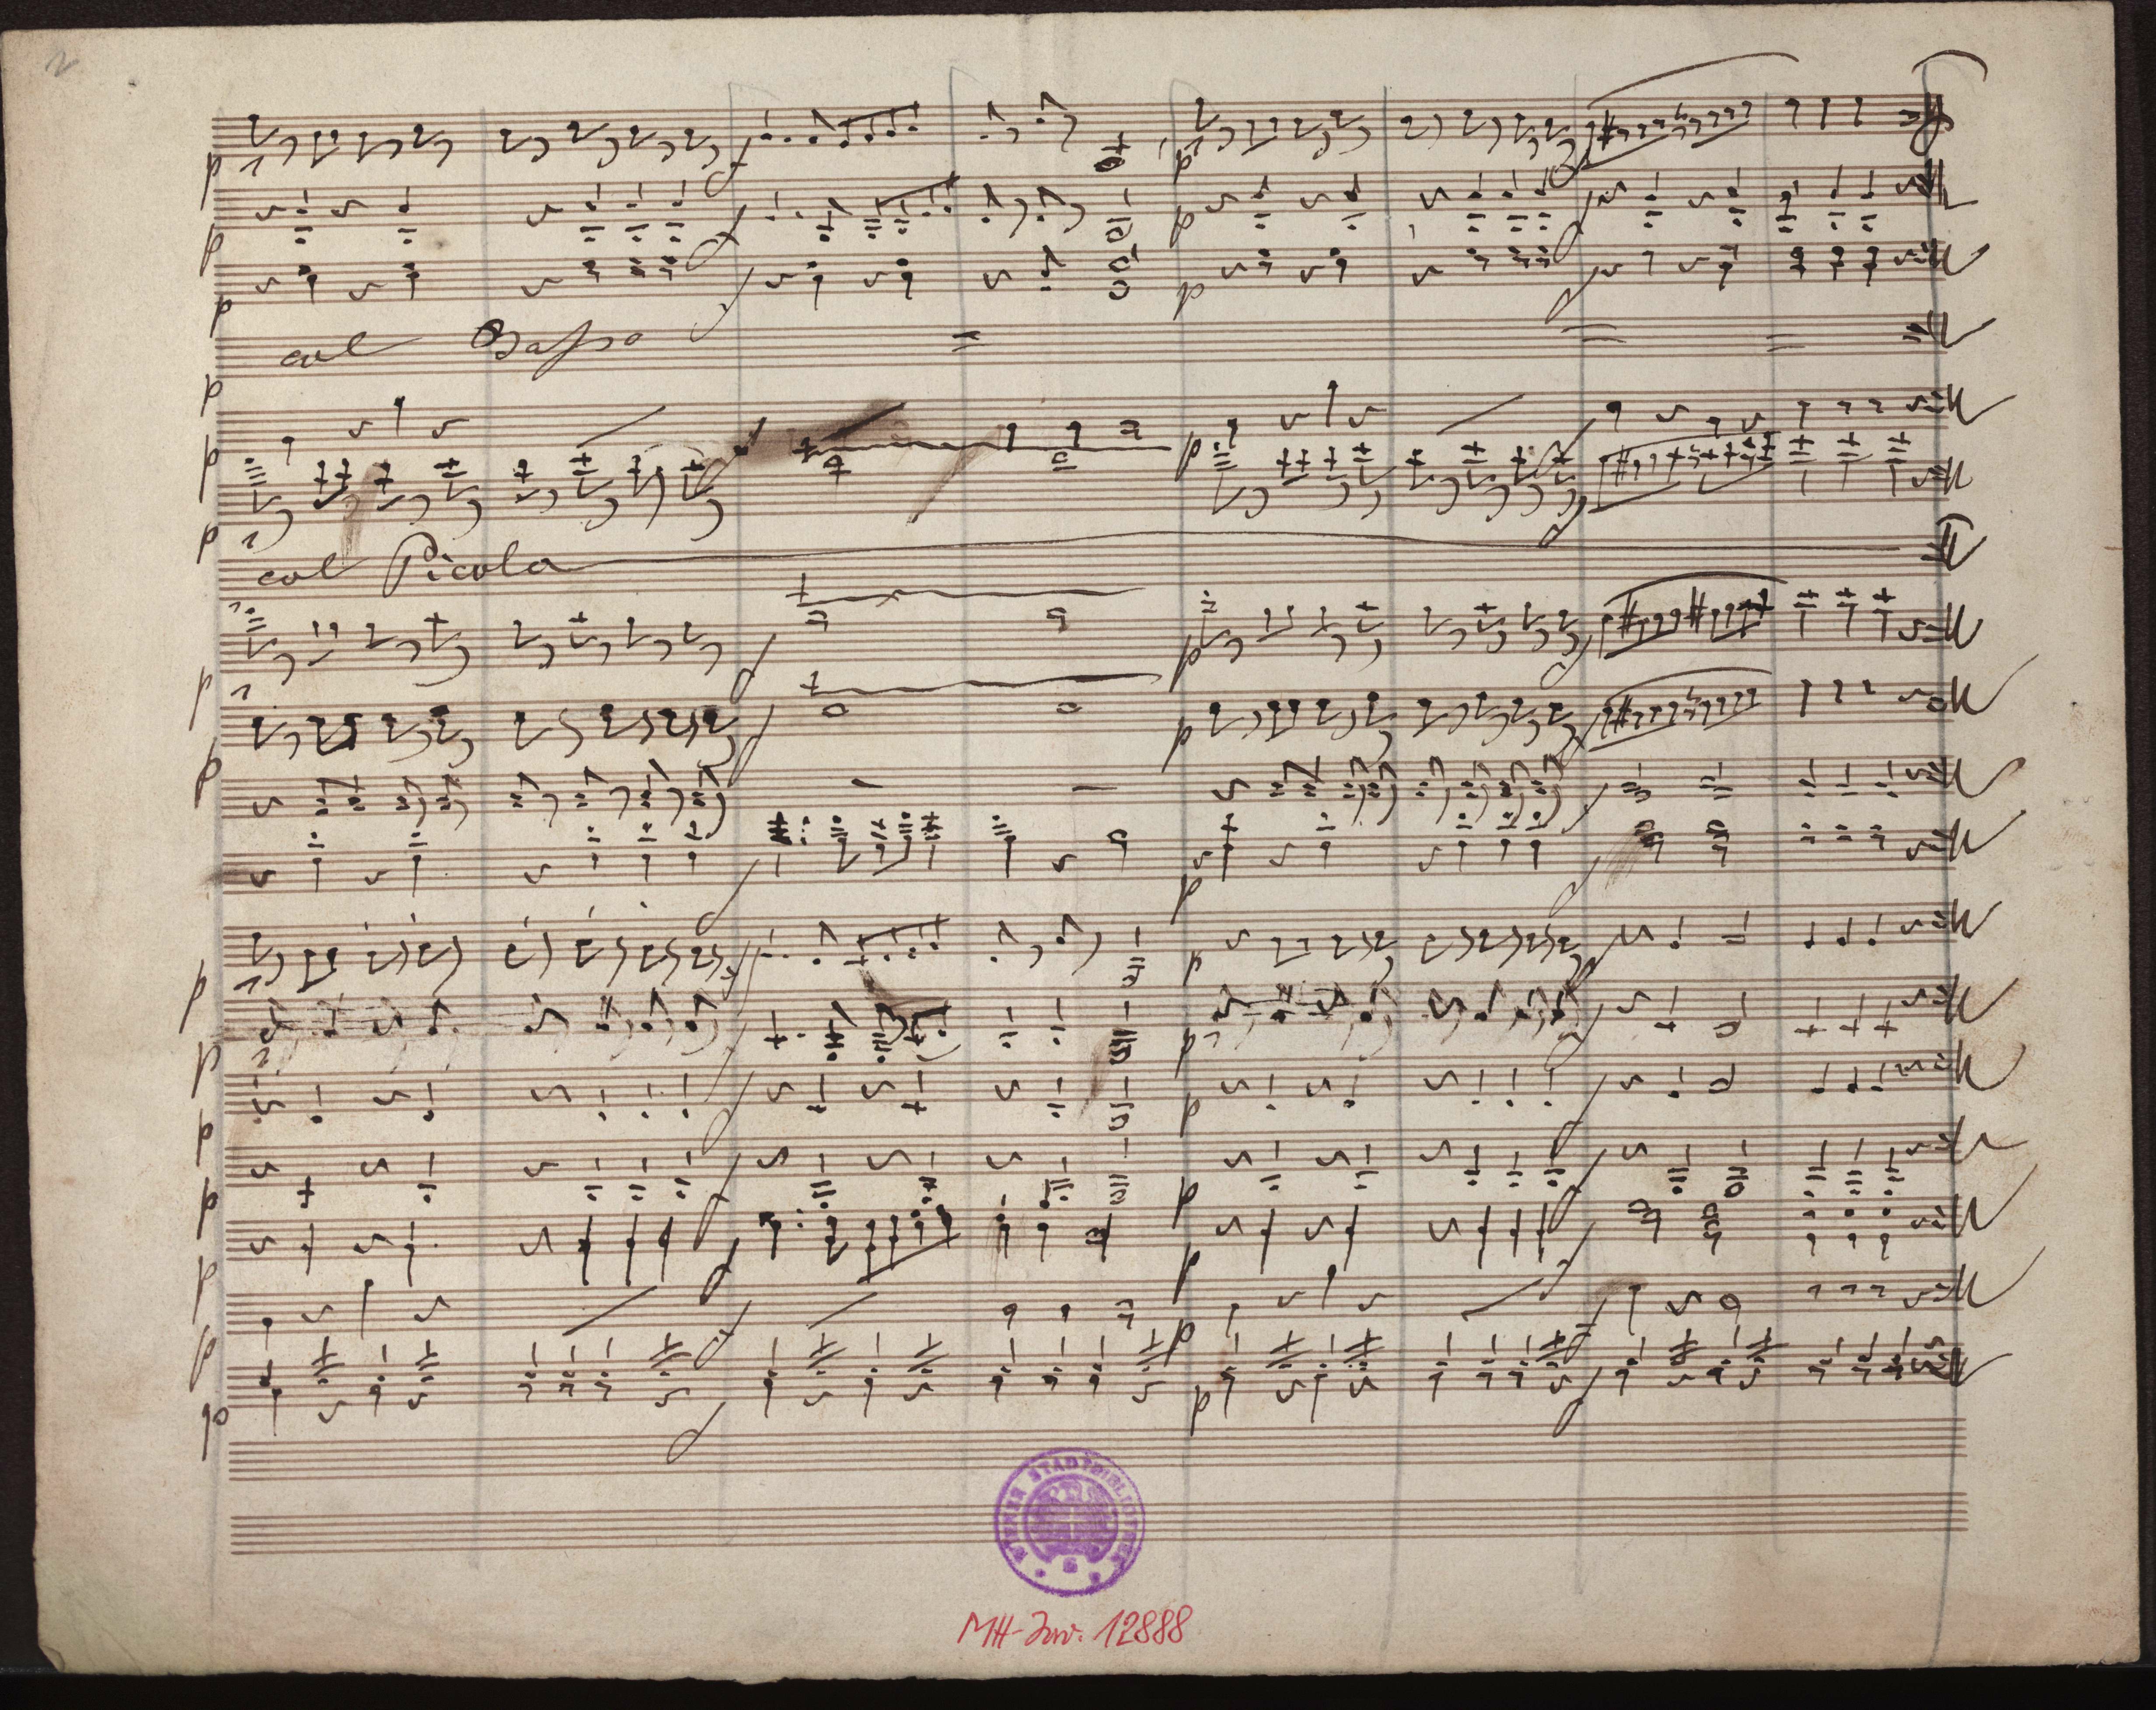 2
col Basso
col Picola
WIENER STADTBIBLIOTHEK
MH-Inv. 12888